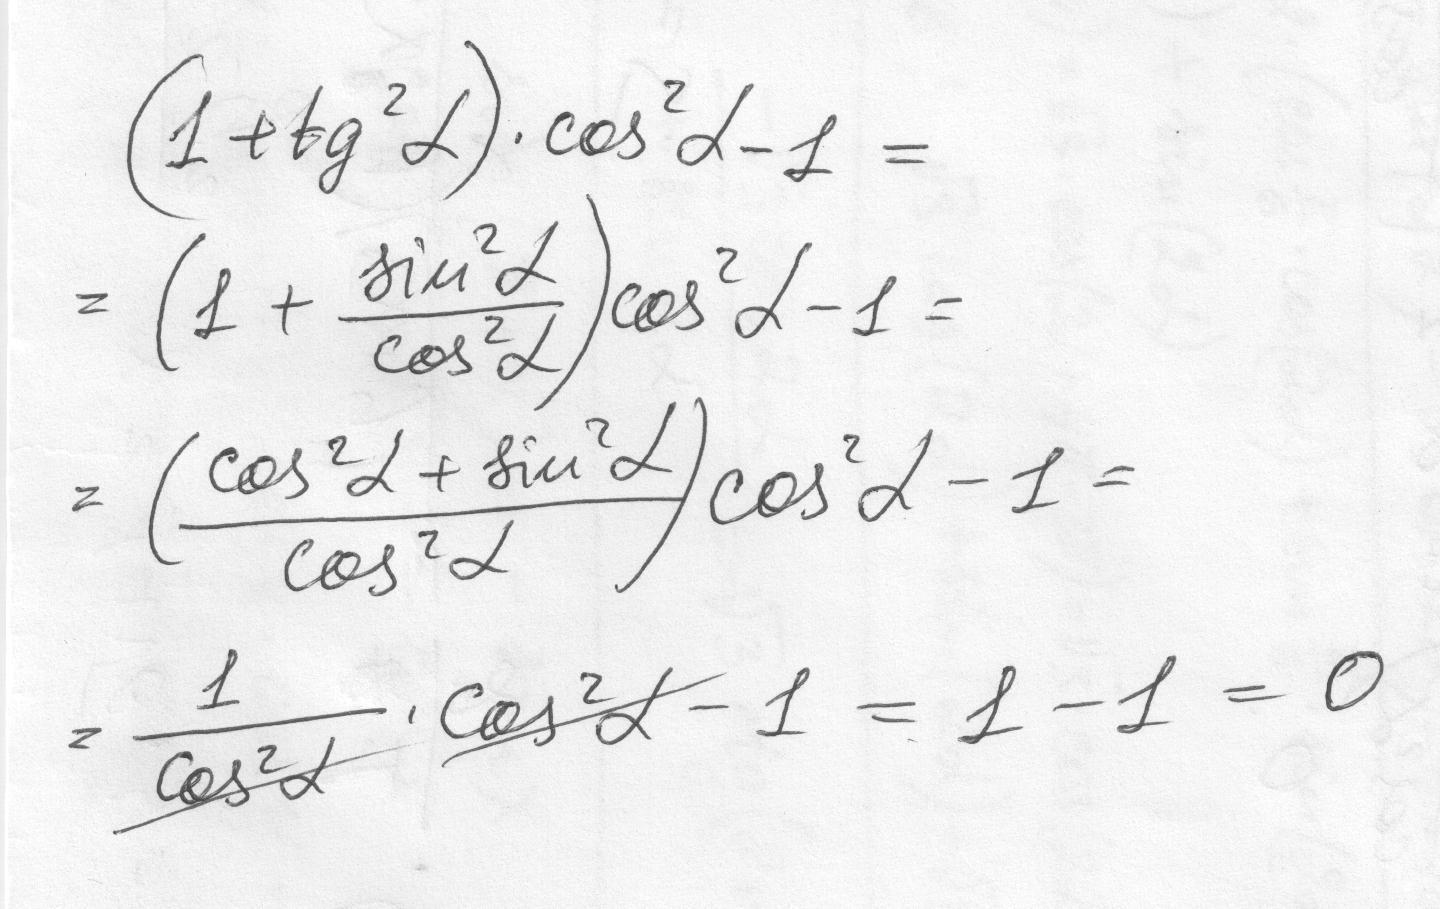 (1 + tg²α) · cos²α - 1 =
= (1 + sin²α/cos²α) cos²α - 1 =
= ((cos²α + sin²α)/cos²α) cos²α - 1 =
= 1/cos²α · cos²α - 1 = 1 - 1 = 0